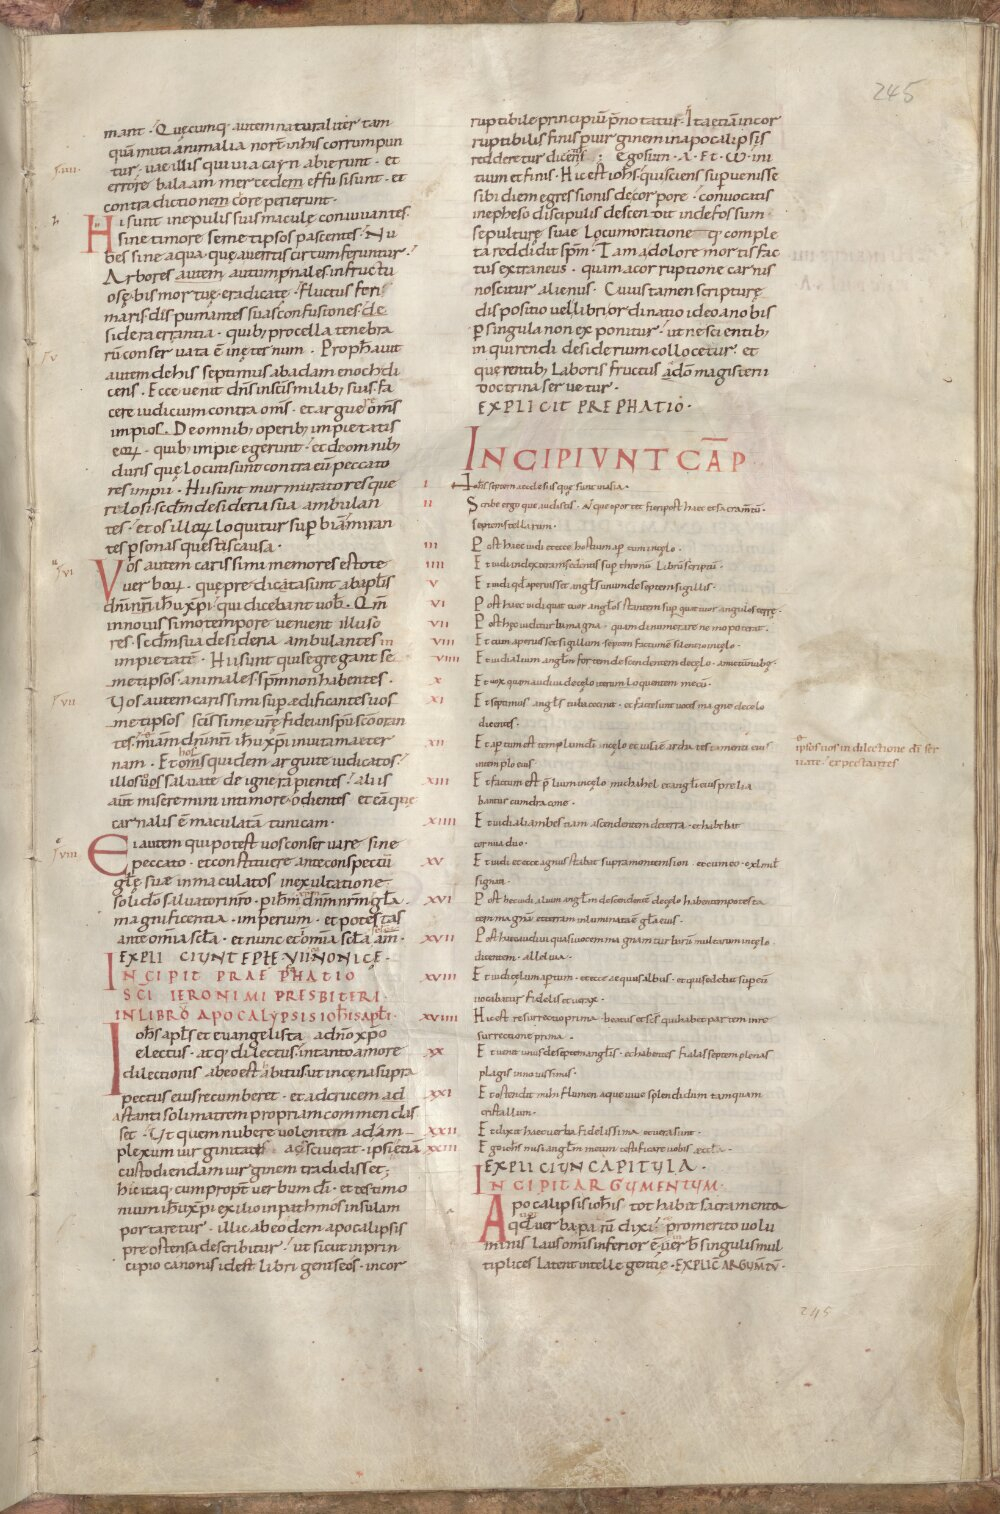 245
mant · Quęcumq; autem naturaliter tam
quā muta animalia norīt in his corrumpun
tur · uae illis qui uia cayn abierunt · et
errore balaam mercedem effusi sunt · et
contradictionem core perierunt ·
Hi sunt in epulis suis macule conuiuantes
sine timore semetipsos pascentes · Nu
bes sine aqua · quę a uentis circumferuntur ·
Arbores autem autumpnales infructu
osę · bis mortuę · eradicatę · fluctus feri
maris · dispumantes suas confusiones · de
sidera errantia · quib; procella tenebra
rū conseruata ē in ęternum · Prophauit
autem de his septimus ab adam enoch di
cens · Ecce uenit dn̄s in sc̄is milib; suis · fa
cere iudicium contra om̄s · et arguere om̄s
impios · De omnib; operib; impietatis
eoꝝ · quib; impie egerunt · et de omnib;
duris quę locuti sunt contra eū peccato
res impii · Hi sunt murmuratores que
relosi · sc̄dm desideria sua ambulan
tes · et os illoꝝ loquitur supbiā miran
tes personas questis causa ·
Vos autem carissimi memores estote
uerboꝝ · quę predicata sunt ab aplis
dn̄i nr̄i ihu xpi · qui dicebant uob̄ · Qm̄
in nouissimo tempore uenient illuso
res · sc̄dm sua desideria ambulantes in
impietatē · Hi sunt qui segregant se
metipsos · animales spm̄ non habentes ·
Vos autem carissimi supædificantes uos
metipsos scissime urę fidei in spu sco oran
tes · miam dn̄i nr̄i ihu xpi in uitam aeter
nam · Et hos quidem arguite iudicatos ·
illos uos saluate de igne rapientes · aliis
aūt miseremini in timore · odientes et eā que
carnalis ē maculatā tunicam ·
Ei autem qui potest uos conseruare sine
peccato · et constituere ante conspectū
glę suæ inmaculatos in exultatione
soli do saluatori nro · p ihm dnm nrm gla ·
magnificentia · imperium · et potestas
ante omīa scla · et nunc et in omīa scla am ·
EXPLICIUNT EPLE VII NONICE ·
INCIPIT PRAEPHATIO
SCI IERONIMI PRESBITERI
IN LIBRO APOCALYPSIS IOHIS APLI ·
Iohs apls et euangelista a dno xpo
electus · atq; dilectus · in tanto amore
dilectionis ab eo est habitus · ut in cena supra
pectus eius recumberet · et ad crucem ad
astanti soli matrem propriam commendas
set · Ut quem nubere uolentem ad am
plexum uirginitatis asciuerat · ipsi etiā
custodiendam uirginem tradidisset ;
hic itaq; cum propt uerbum di · et testimo
nium ihu xpi exilio in pathmos insulam
portaretur · illic ab eodem apocalipsis
preostensa describitur · ut sicut in prin
cipio canonis idest libri geniseos · incor
ruptibile principiū pnotatur · Ita etiam incor
ruptibilis finis p uirginem in apocalipsis
redderetur dicens ; Ego sum · A · Et · ω · ini
tium et finis · Hic est iohs · qui sciens superuenisse
sibi diem egressionis de corpore · conuocatis
in epheso discipulis descendit in defossum
sepulturę suae locum · oratione q; comple
ta reddidit spm · Tam a dolore mortis fac
tus extraneus · quam a corruptione carnis
noscitur alienus · Cuius tamen scripturę
dispositio uel libri ordinatio ideo a nobis
p singula non exponitur · ut nescientib;
inquirendi desiderium collocetur · et
querentib; laboris fructus · et do magisterii
doctrina seruetur ·
EXPLICIT PREPHATIO ·
INCIPIVNT CAP
I Iohs septem aecclesiis que sunt in asia ·
II Scribe ergo que uidisti · Et que oportet fieri post haec et sacramtū ·
septem stellarum ·
III Post haec uidi et ecce hostium ap tum in cęlo ·
IIII Et uidi in dextera m sedentis sup thronū librū scriptū ·
V Et uidi qd aperuisset angls unum de septem sigillis ·
VI Post haec uidi quattuor anglos stantem sup quattuor angulos terrę ·
VII Post hec uidi turba magna · quam dinumerare nemo poterat ·
VIII Et cum aperuisset sigillum · septem factum ē silentio in cęlo ·
VIIII Et uidi alium anglm fortem descendentem de cęlo · amictū nubę ·
X Et uox quem audiui de cęlo iterum loquentem mecū ·
XI Et septimus angls tuba cecinit · et factę sunt uoces magne de cęlo
dicentes ·
XII Et apertum est templum di in cęlo et uisa ē archa testamenti eius
in templo eius
XIII Et factum est plium in cęlo michahel et angli eius prelia
bantur cum dracone ·
XIIII Et uidi aliam bestiam ascendentem de terra · et habebat
cornua duo ·
XV Et uidi et ecce agnus stabat supra montem sion · et cum eo · cxl mil
signati ·
XVI Post hec uidi alium anglm descendentē de cęlo habentem potesta
tem magnā et terram inluminata ē gla eius ·
XVII Post haec audiui quasi uocem magnam turbarū multarum in cęlo
dicentem · alleluia ·
XVIII Et uidi cęlum aptum · et ecce aequus albus · et qui sedebat sup eū
uocabatur fidelis et uerax ·
XVIIII Hic est resurrectio prima · beatus et scs qui habet partem in re
surrectione prima ·
XX Et uenit unus de septem anglis · et habentes fialas septem plenas
plagis in nouissimis ·
XXI Et ostendit mihi flumen aque uiue splendidum tamquam
cristallum ·
XXII Et dixit haec uerba fidelissima et uera sunt ·
XXIII Ego iohs misi anglm meum testificare uobis · eccla ·
EXPLICIUN CAPITVLA ·
INCIPIT ARGVMENTVM ·
Apocalipsis iohis tot habet sacramenta
qd uerba parū dixi · pro merito uolu
minis laus om̄is inferior ē · uerb singulis mul
tiplices latent intellegentię · EXPLIC ARGVMTV ·
ipsos uos in dilectione di ser
uate · expectantes
245